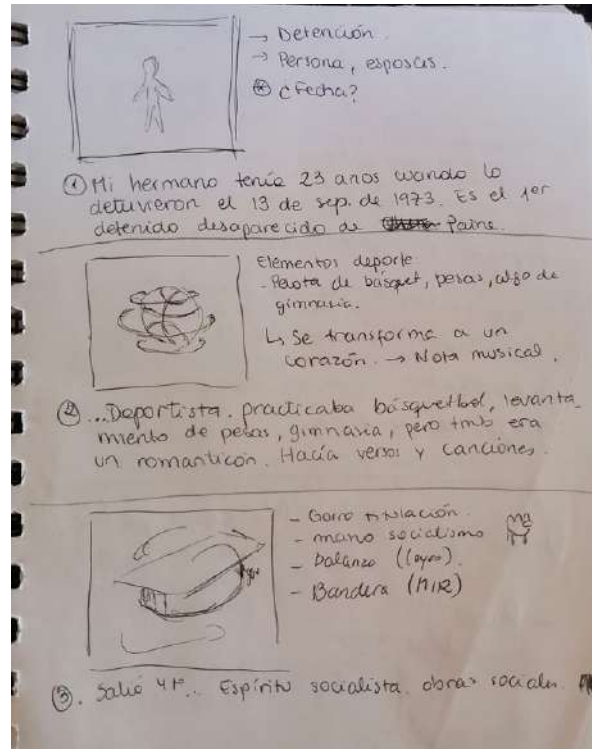 → Detención.
→ Persona, esposas.
⊛ ¿Fecha?
① Mi hermano tenía 23 anos cuando lo
detuvieron el 13 de sep. de 1973. Es el 1er
detenido desaparecido de Paine.
Elementos deporte:
- Pelota de básquet, pesas, algo de
gimnasia.
↳ Se transforma a un
corazón. → Nota musical.
② ... Deportista. practicaba básquetbol, levanta-
miento de pesas, gimnasia, pero tmb era
un romanticón. Hacía versos y canciones.
- Gorro titulación.
- mano socialismo
- balanza (leyes).
- Bandera (MIR)
③. Salió 4º.. Espíritu socialista. obras sociales.